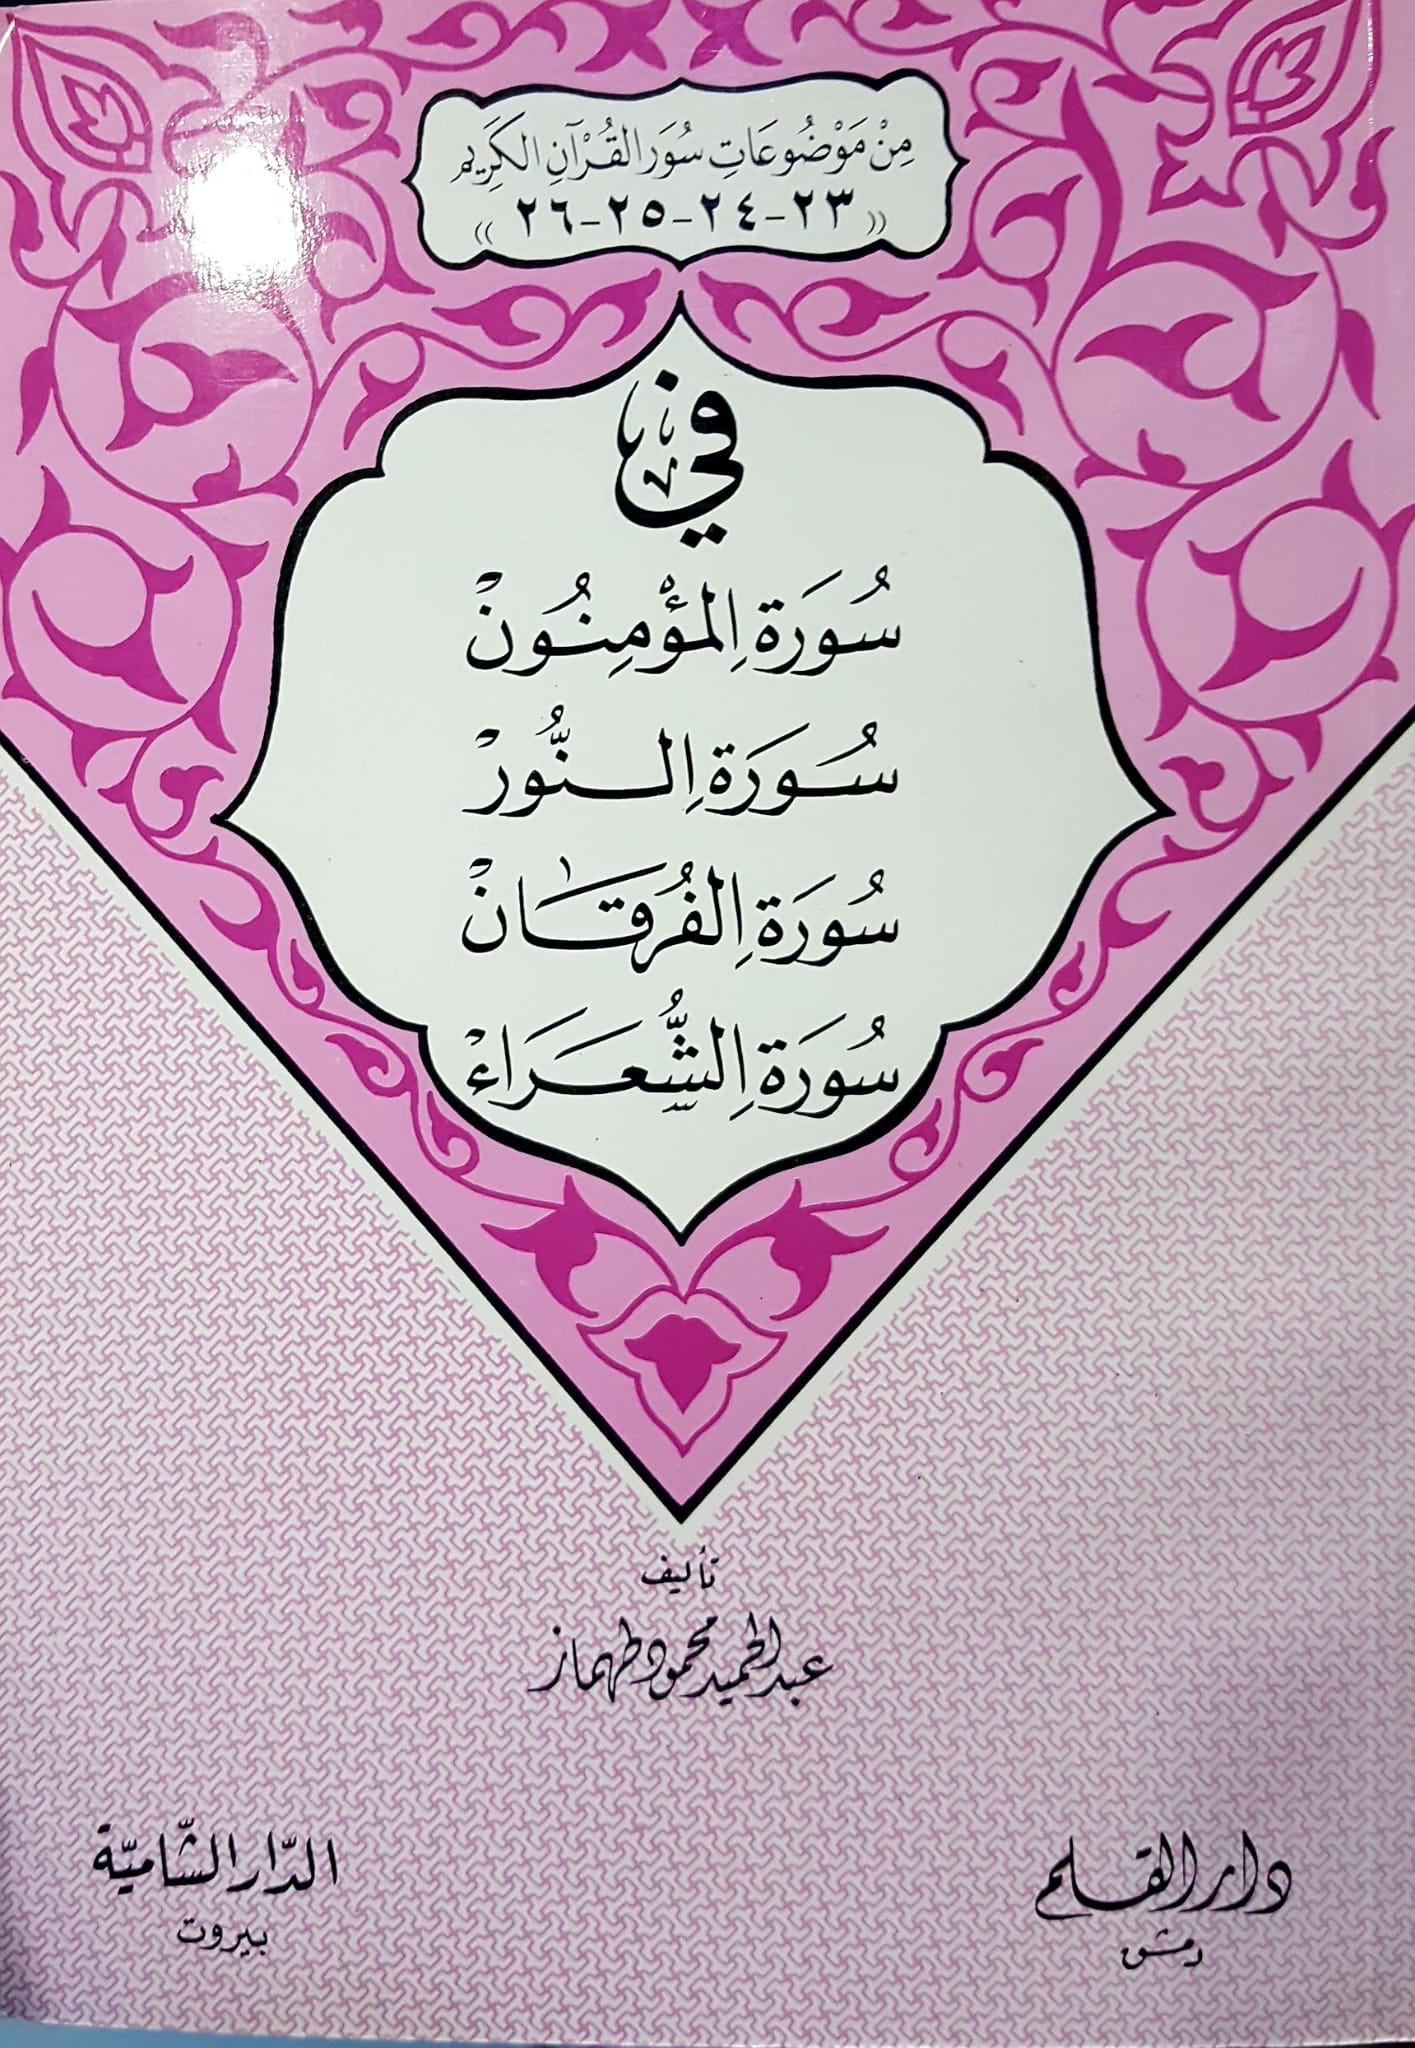 مِنْ مَوْضُوعَاتِ سُوَرِ القُرْآنِ الكَرِيمِ
(( ٢٣-٢٤-٢٥-٢٦ ))
في
سُورَةِ المُؤْمِنُونْ
سُورَةِ النُّورْ
سُورَةِ الفُرْقَانْ
سُورَةِ الشُّعَرَاءْ
تأليف
عبد الحميد محمود طهماز
دار القلم
دمشق
الدّار الشّاميّة
بيروت